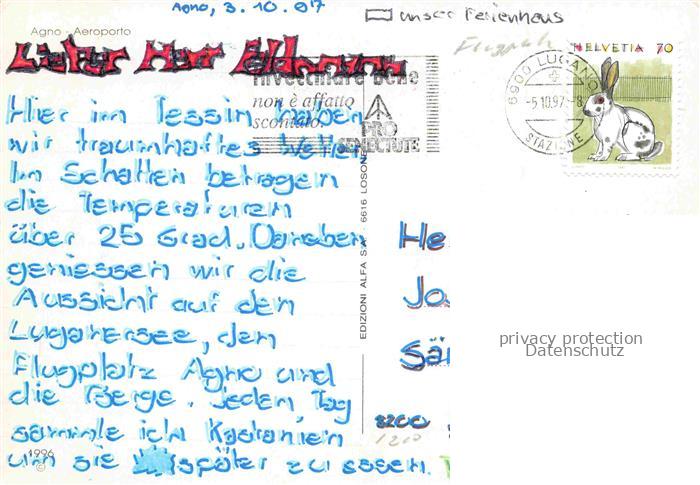 Agno, 3.10.97
unser Ferienhaus
Agno - Aeroporto
Flugpl
HELVETIA 70
6900 LUGANO
-5.10.97-8
STAZIONE
Invecchiare bene
non è affatto
scontato.
PRO
SENECTUTE
Lieber Herr
Hier im Tessin haben
wir traumhaftes Wetter
Im Schatten betragen
die Temperaturen
über 25 Grad. Daneben
geniessen wir die
Aussicht auf den
Luganersee, den
Flugplatz Agno und
die Berge. Jeden Tag
sammle ich Kastanien
um sie später zu essen.
1996
©
EDIZIONI ALFA SA - 6616 LOSONE
He
Jo
Säi
8200
1200
privacy protection
Datenschutz